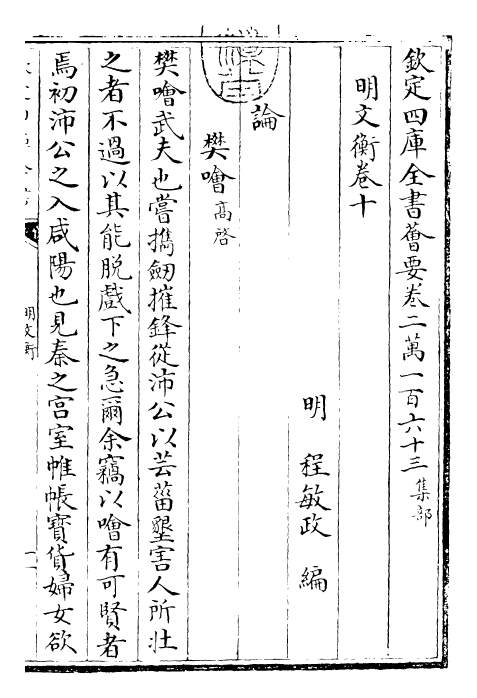 欽定四庫全書薈要卷二萬一百六十三集部
明文衡卷十
明程敏政編
論
樊噲高啓
樊噲武夫也嘗擕劒摧鋒從沛公以芸菑墾害人所壯
之者不過以其能脫戲下之急爾余竊以噲有可賢者
焉初沛公之入咸陽也見秦之宫室帷帳寳貨婦女欲
明文衡